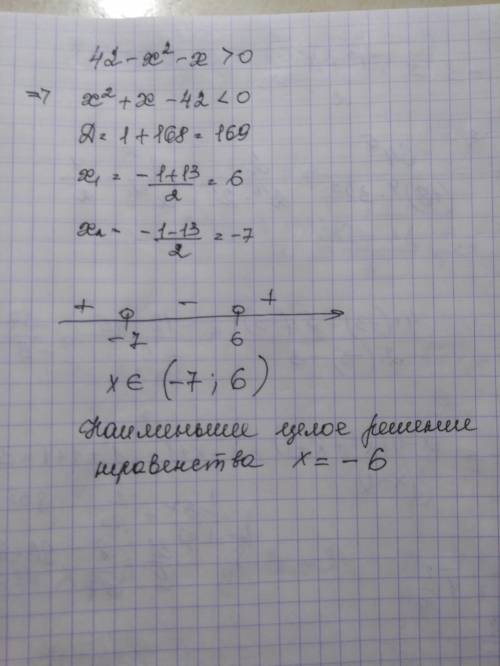 42 - x² - x > 0
=> x² + x - 42 < 0
Д = 1 + 168 = 169
x₁ = -1+13/2 = 6
x₂ - -1-13/2 = -7
+ - +
-7 6
x ∈ (-7; 6)
Наименьшее целое решение
неравенства x = -6